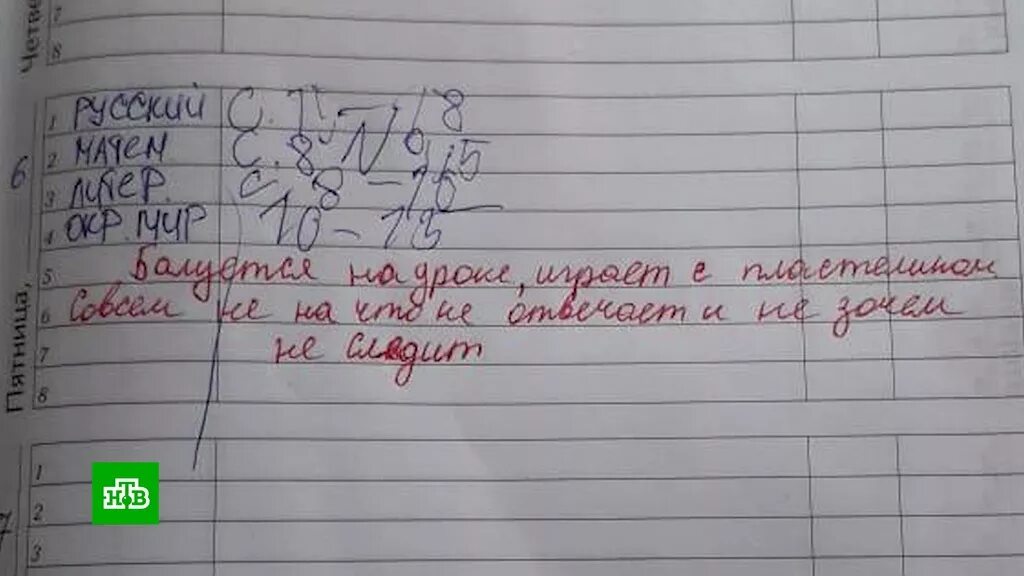 Четве
7
8
6
Пятница,
1 РУССКИЙ С.
2 МАТЕМ С. 8
3 ЛИТЕР. С. 8 – 16
4 ОКР. МИР 10 – 13
5 Балуется на уроке, играет с пластелином
6 Совсем не на что не отвечает и не зачем
7 не следит
8
НТВ
7
1
2
3